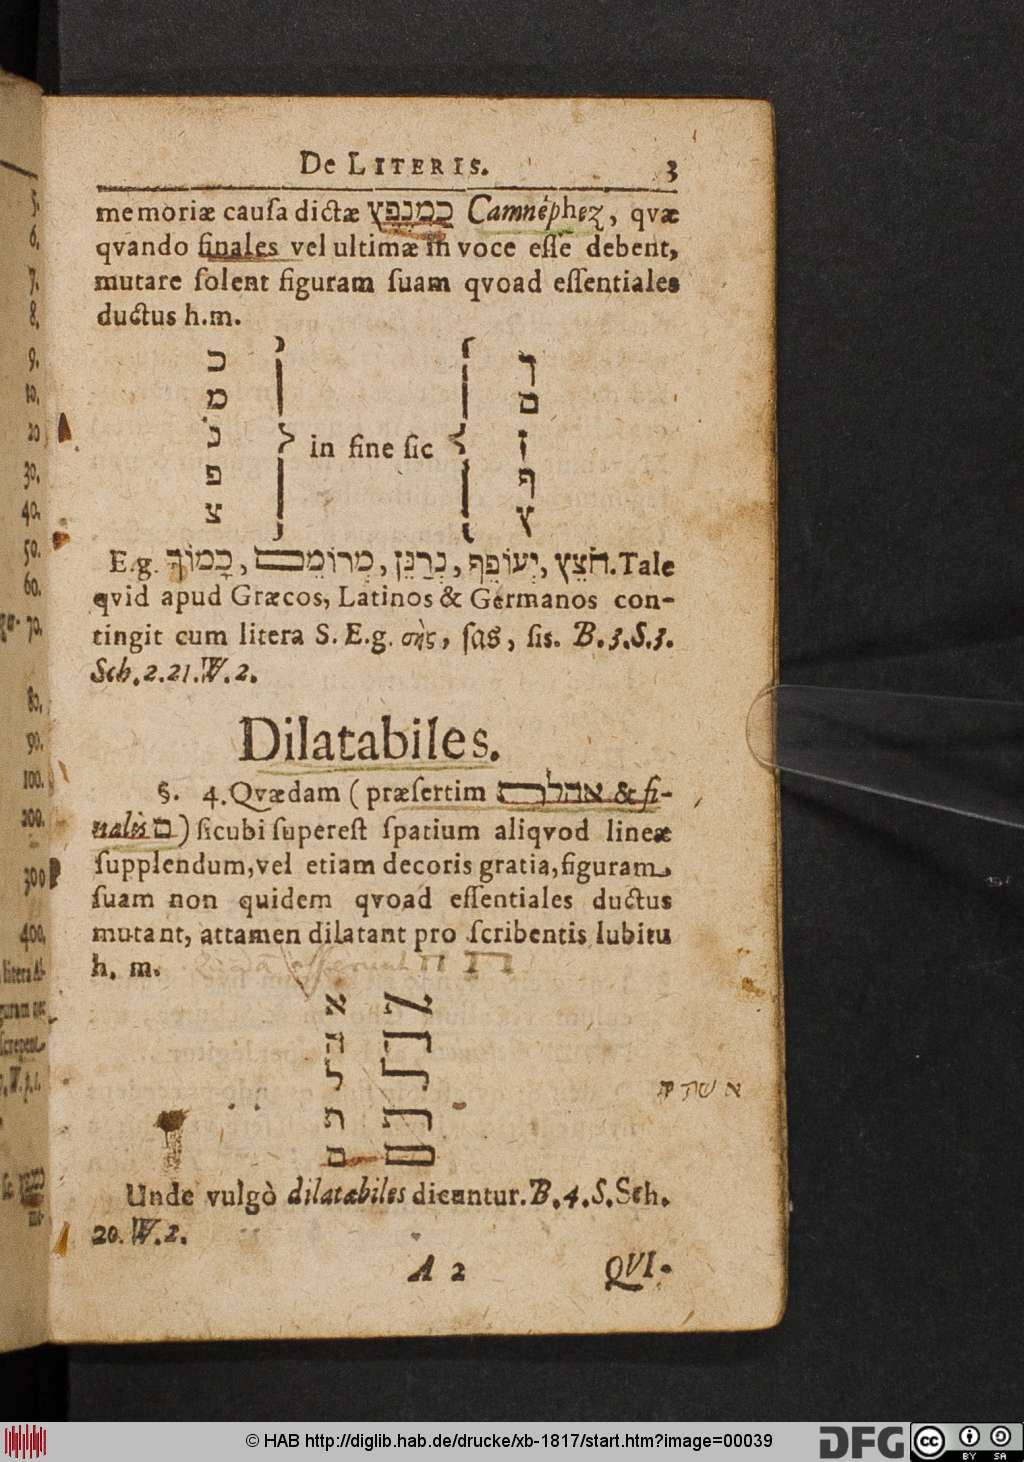 De LITERIS. 3
memoriæ cauſa dictæ כַמְנֵפֶץ Camnéphez, qvæ
qvando finales vel ultimæ in voce eſſe debent,
mutare ſolent figuram ſuam qvoad eſſentiales
ductus h.m.
כ ך
מ ם
נ in fine ſic ן
פ ף
צ ץ
E.g. חֹצֵץ, יְעוֹפֵף, נְרַנֵּן, מְרוֹמֵם, כָּמוֹךָ. Tale
qvid apud Græcos, Latinos & Germanos con-
tingit cum litera S. E.g. σὴς, ſas, ſis. B.3.S.3.
Sch.2.21.W.2.
Dilatabiles.
§. 4. Qvædam (præſertim אהלת & fi-
nalis ם) ſicubi ſupereſt ſpatium aliqvod lineæ
ſupplendum, vel etiam decoris gratia, figuram
ſuam non quidem qvoad eſſentiales ductus
mutant, attamen dilatant pro ſcribentis lubitu
h. m.
א ﬡ
ה ﬣ
ל ﬥ
ת ﬨ
ם ﬦ
Unde vulgò dilatabiles dicuntur. B.4.S.Sch.
20. W.2.
A 2 QVI-
5.
6.
7.
8.
9.
10.
20
30.
40.
50.
60.
70.
80.
90.
100.
200.
300
400.
© HAB http://diglib.hab.de/drucke/xb-1817/start.htm?image=00039
DFG
cc
BY SA